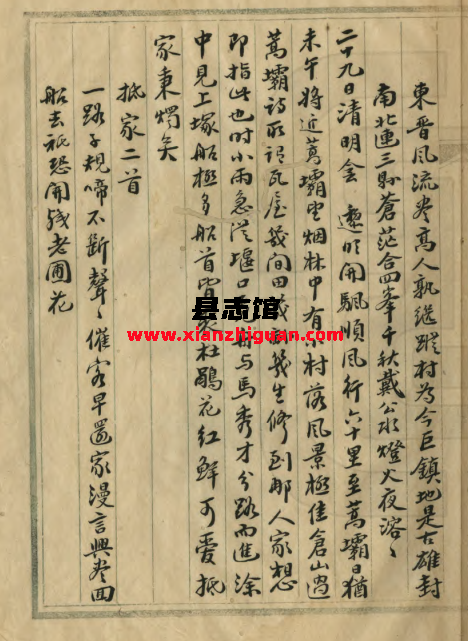 東晉風流盡高人孰繼蹤村為今巨鎮地是古雄封
南北連三縣蒼茫合四峯千秋戴公水燈火夜溶〻
二十九日清明金 遲明開颿順風行六十里至蒿壩日猶
未午將近蒿壩望烟林中有小村落風景極佳倉山過
蒿壩詩所謂瓦屋幾間田幾稜幾生修到那人家想
即指此也时小雨急從堰口 舟与馬秀才分路而進途
中見上塚船極多船首皆裝杜鵑花红鮮可愛抵
家秉燭矣
抵家二首
一路子規啼不断聲〻催客早還家漫言興盡回
船去祇恐開殘老圃花
县志馆
www.xianzhiguan.com